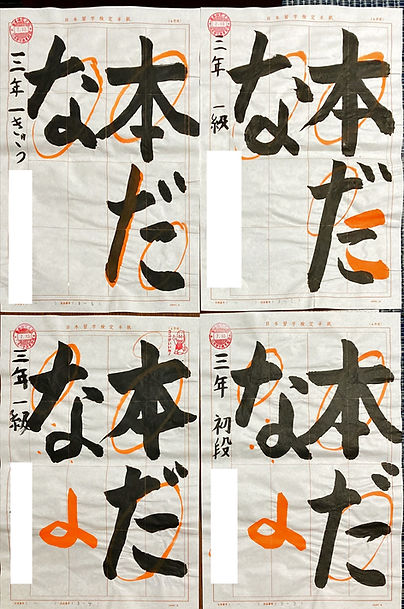 日本習字検定半紙
本だ
な
三年 一きゅう
日本習字検定半紙
本だ
な
三年 一級
日本習字検定半紙
本だ
な
三年 一級
日本習字検定半紙
本だ
な
三年 初段